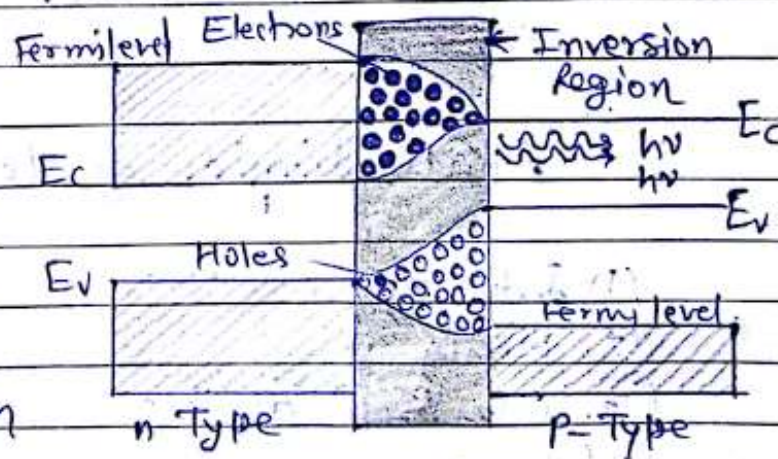 Fermilevel Electrons Inversion
Region
Ec
Ec
hν
hν
Ev
Holes
Ev
Fermi level
n Type P-Type